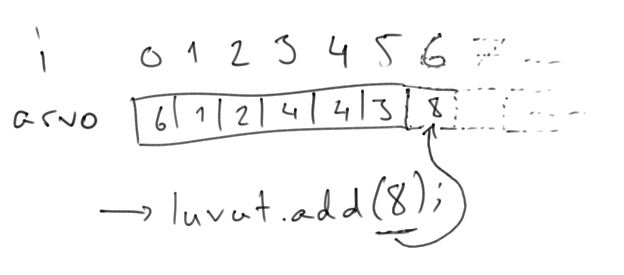 i 0 1 2 3 4 5 6 7 ...
arvo 6 1 2 4 4 3 8
→ luvut.add(8);